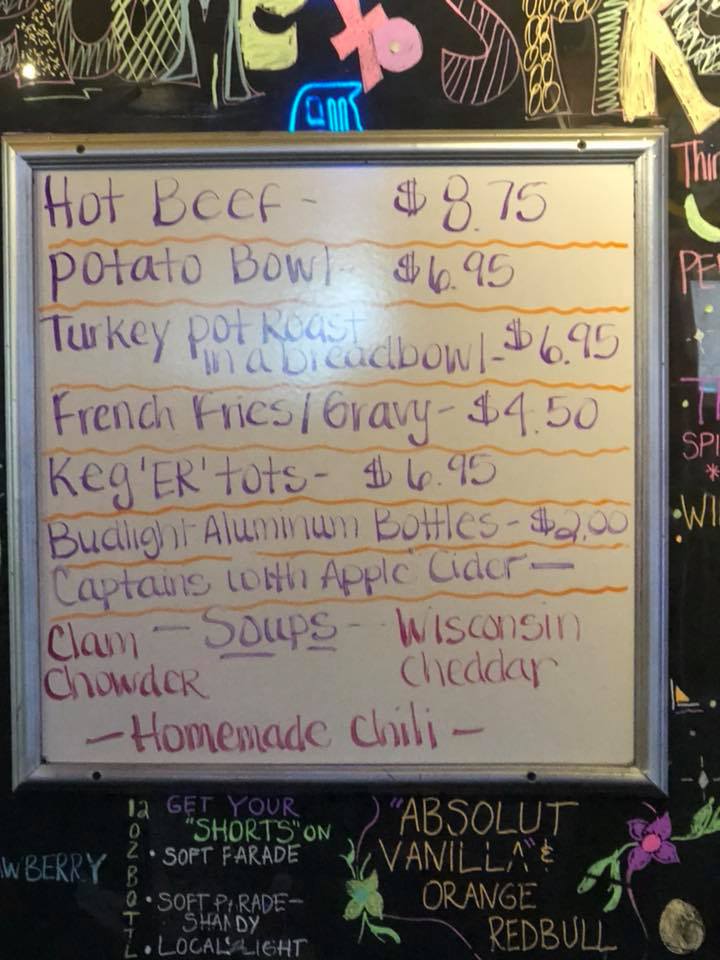 Hot Beef - $8.75
Potato Bowl - $6.95
Turkey Pot Roast
in a breadbowl - $6.95
French Fries / Gravy - $4.50
Keg 'ER' tots - $6.95
Budlight Aluminum Bottles - $2.00
Captains with Apple Cider —
— Soups -
Clam Chowder
Wisconsin Cheddar
— Homemade Chili —
12 OZ BOTTL
GET YOUR
"SHORTS" ON
• SOFT PARADE
• SOFT PARADE-
SHANDY
• LOCAL'S LIGHT
WBERRY
"ABSOLUT
VANILLA" &
ORANGE
REDBULL
PE
SPI
WI